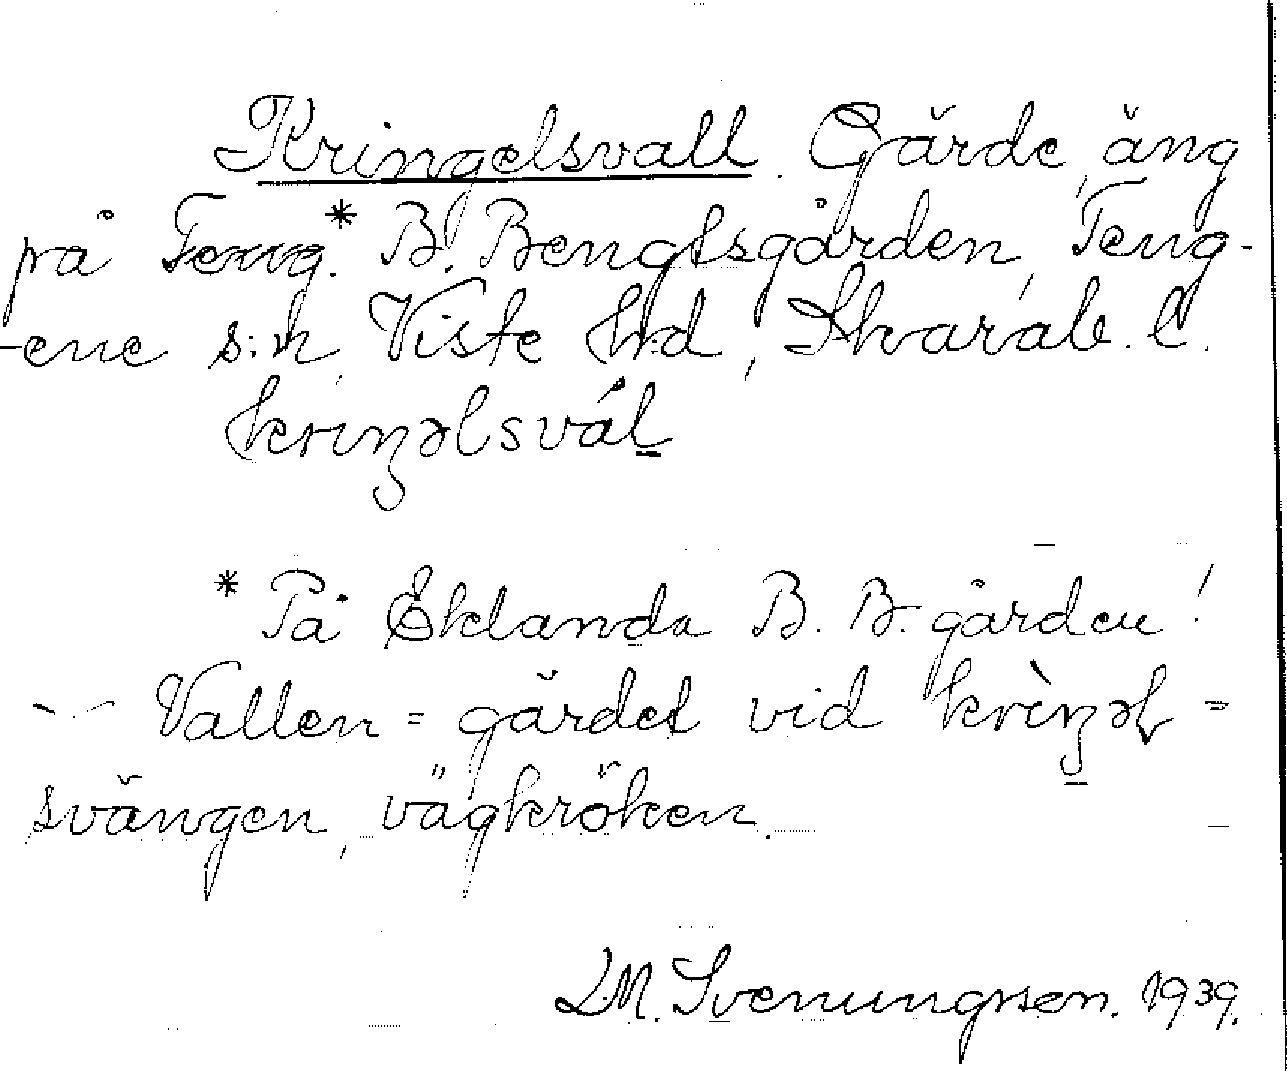 Kringelsvall. Gärde, äng
på Teng.* B. Bengtsgården, Teng-
-ene s:n, Viste hd, Skarab. l.
kriŋəlsvál
* På Eklanda B. B. gården!
Vallen = gärdet vid krìŋəl =
svängen, vägkröken.
L.M. Svenungsson. 1939.